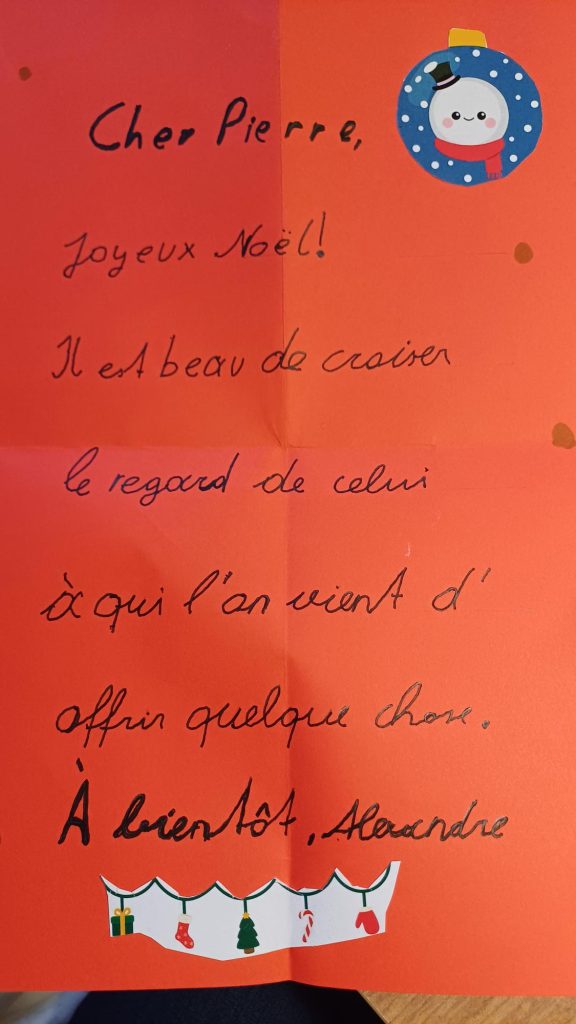 Cher Pierre,
Joyeux Noël!
Il est beau de croiser
le regard de celui
à qui l'on vient d'
offrir quelque chose.
À bientôt, Alexandre